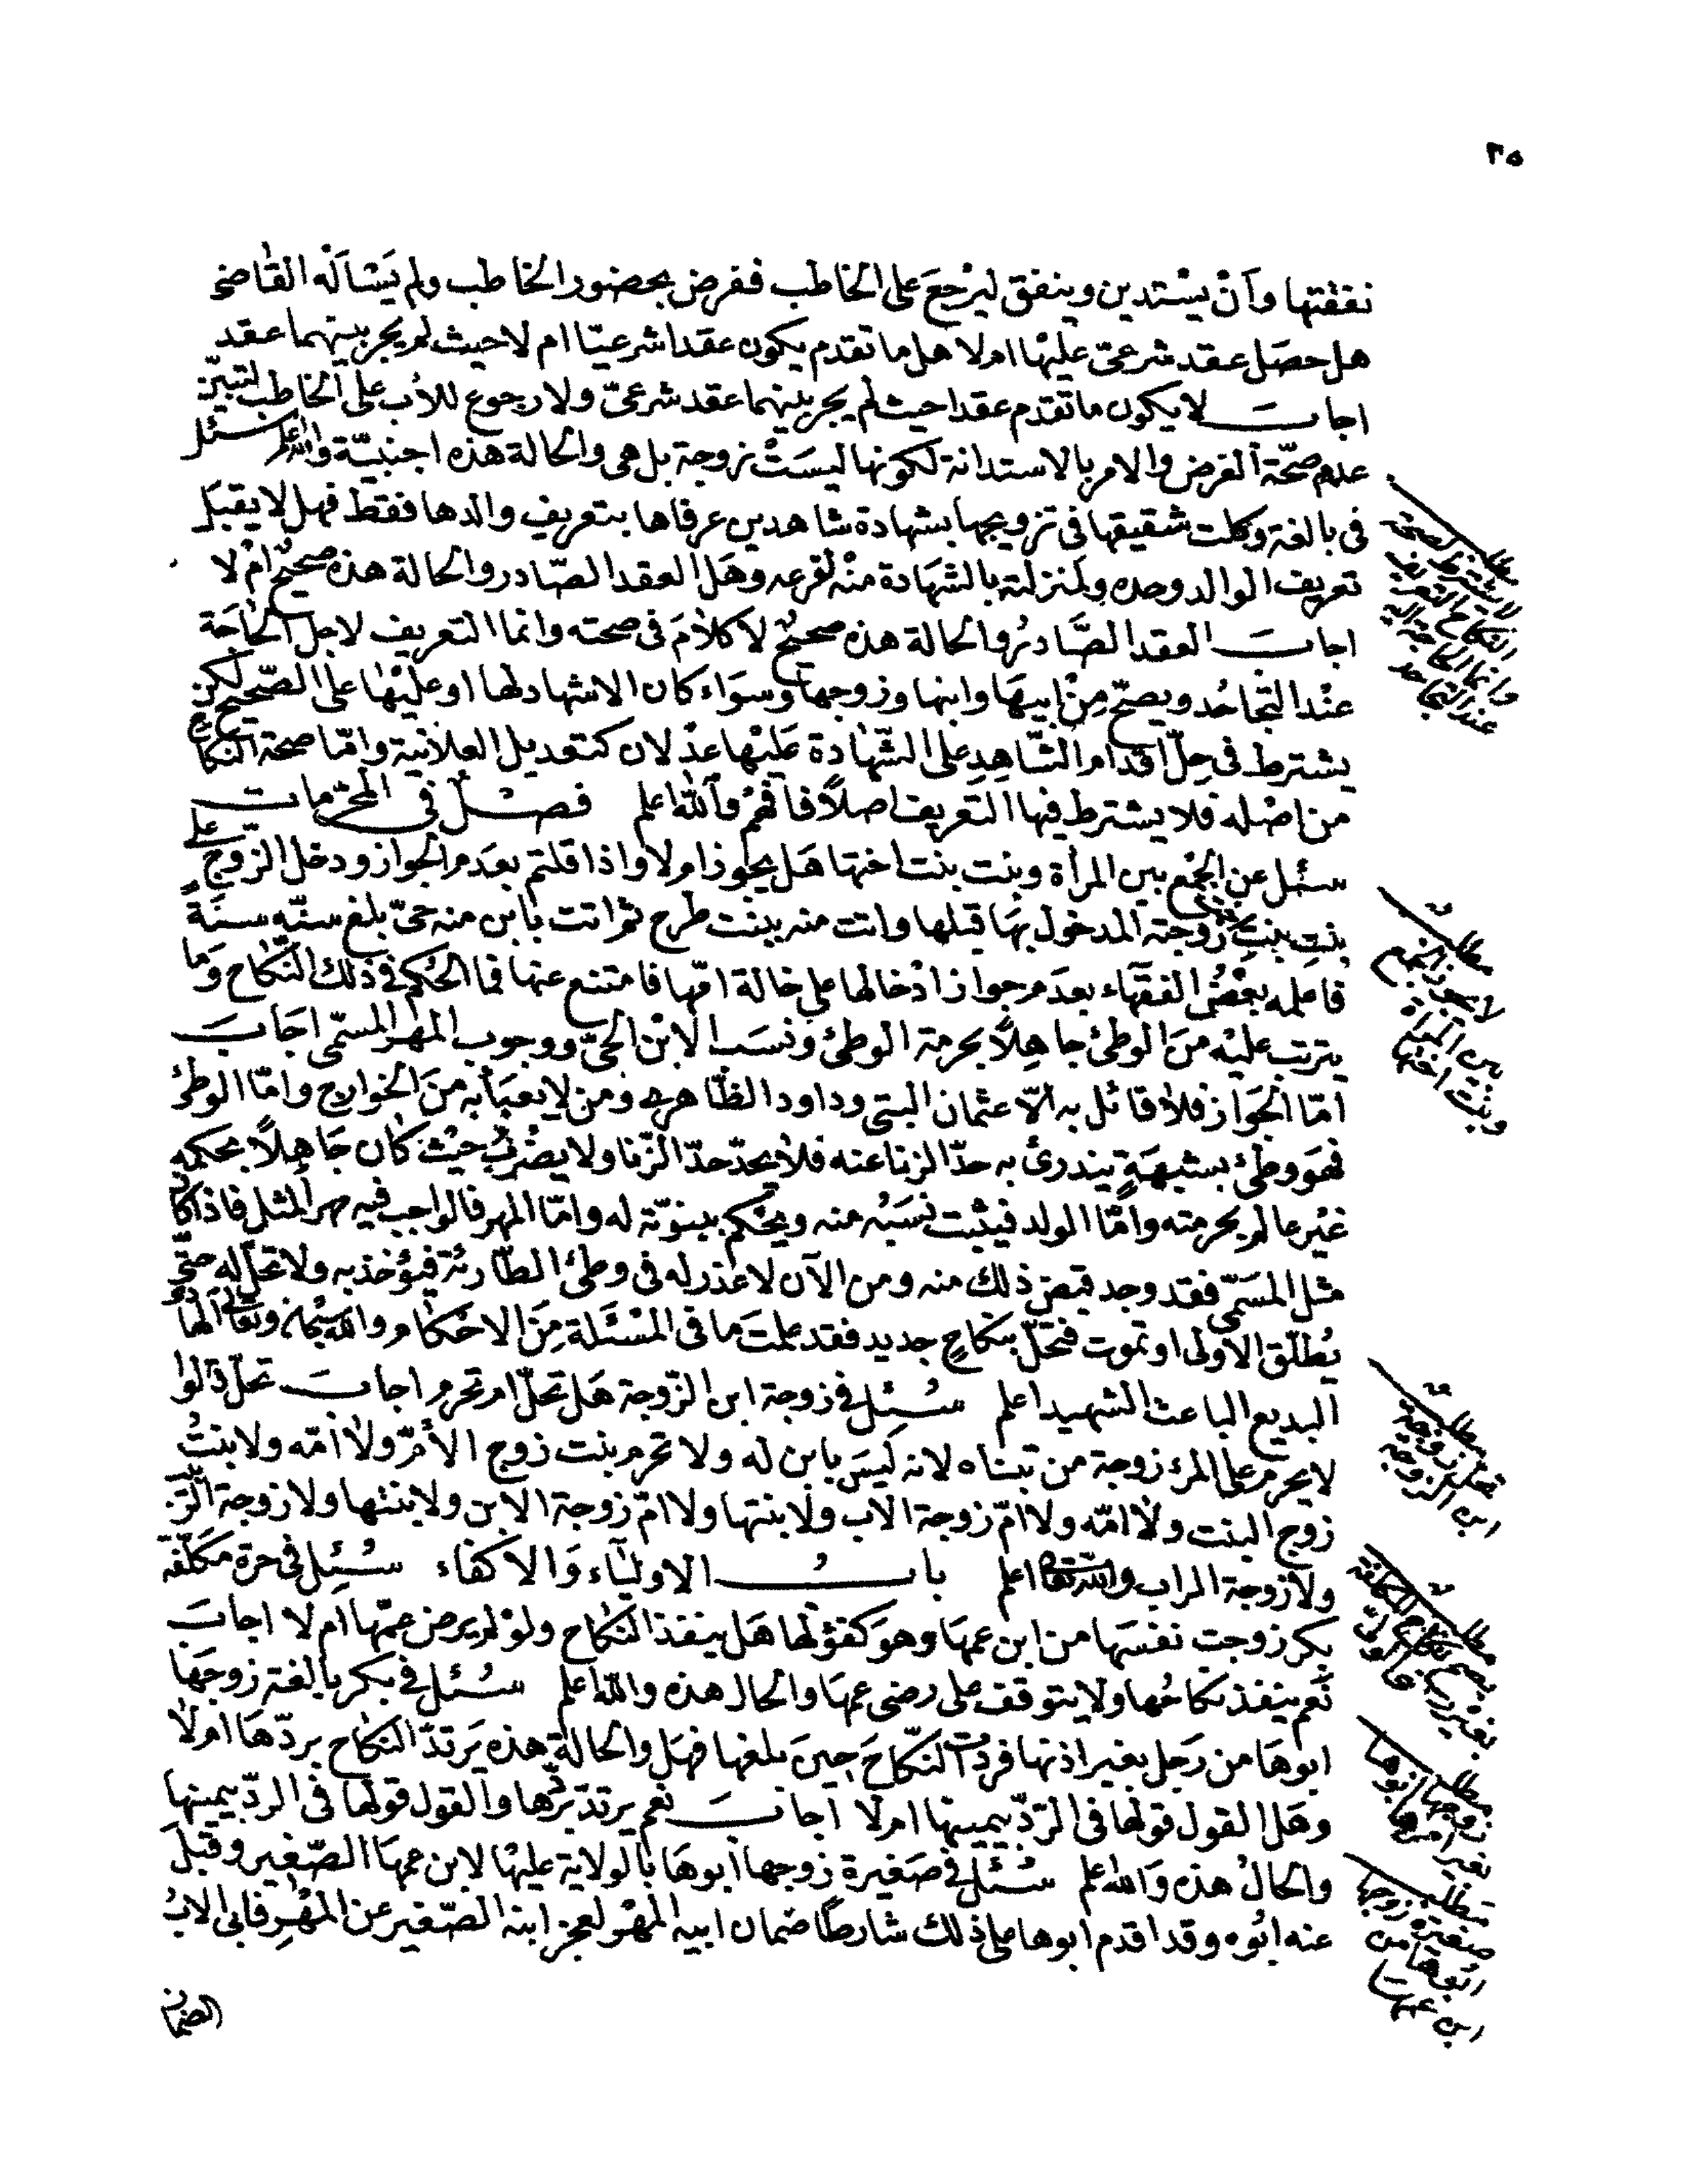 ٢٥
نفقتها وأن يستدين وينفق ليرجع على الخاطب ففرض بحضور الخاطب ولم يسأله القاضي
هل حصل عقد شرعي عليها ام لا هل ما تقدم يكون عقدا شرعيا ام لا حيث لم يجر بينهما عقد
اجاب لا يكون ما تقدم عقدا حيث لم يجر بينهما عقد شرعيّ ولا رجوع للأب على الخاطب لتبيّن
عدم صحّة الفرض والامر بالاستدانة لكونها ليست زوجة بل هي والحالة هذه اجنبيّة والله اعلم سئل
في بالغة وكلت شقيقها في تزويجها بشهادة شاهدين عرفاها بتعريف والدها فقط فهل لا يقبل
تعريف الوالد وحده ولمنزلته بالشهادة منه لفرعه وهل العقد الصّادر والحالة هذه صحيح ام لا
اجاب العقد الصّادر والحالة هذه صحيح لا كلام في صحته وانما التعريف لاجل الحاجة
عند التجاحد ويصحّ من ابيها وابنها وزوجها وسواء كان الاشهاد لها او عليها على الصّحيح لكن
يشترط في حلّ اقدام الشّاهد على الشّهادة عليها عدلان كتعديل العلانية وامّا صحة النكاح
من اصله فلا يشترط فيها التعريف اصلاً فافهم والله اعلم فصل في المحرّمات
سئل عن الجمع بين المرأة وبنت بنت اختها هل يجوز ام لا واذا قلتم بعدم الجواز ودخل الزوج على
بنت بنت زوجته المدخول بها قبلها واتت منه ببنت طرح ثم اتت بابن منه حيّ بلغ سنّه سنة
فاعلمه بعض الفقهاء بعدم جواز ادخالها على خالة امّها فامتنع عنها فما الحكم في ذلك النّكاح وما
يترتب عليه من الوطئ جاهلاً بحرمة الوطئ ونسب الابن الحيّ ووجوب المهر المسمّى اجاب
امّا الجواز فلا قائل به الّا عثمان البتي وداود الظّاهري ومن لا يعبأ به من الخوارج وامّا الوطئ
فهو وطئ بشبهة يندرئ به حدّ الزنا عنه فلا يحدّ حدّ الزّنا ولا يضرب حيث كان جاهلاً بحكمه
غير عالم بحرمته وامّا الولد فيثبت نسبه منه ويحكم ببنوّته له وامّا المهر فالواجب فيه مهر المثل فاذا كان
مثل المسمّى فقد وجد قبض ذلك منه ومن الآن لا عذر له في وطئ الطّارئة فيؤخذ به ولا تحلّ له حتّى
يُطلّق الاولى او تموت فتحلّ بنكاح جديد فقد علمت ما في المسئلة من الاحكام والله سبحانه وتعالى الهادي
البديع الباعث الشهيد اعلم سُئِل في زوجة ابن الزّوجة هل تحلّ ام تحرم اجاب تحلّ قالوا
لا يحرم على المرء زوجة من تبناه لانه ليس بابن له ولا تحرم بنت زوج الأمّ ولا امّه ولا بنت
زوج البنت ولا امّه ولا امّ زوجة الاب ولا بنتها ولا امّ زوجة الابن ولا بنتها ولا زوجة الرّبيب
ولا زوجة الراب والله تعالى اعلم باب الاولياء والاكفاء سُئِل في حرة مكلّفة
بكر زوجت نفسها من ابن عمها وهو كفؤ لها هل ينفذ النكاح ولو لم يرض عمّها ام لا اجاب
نعم ينفذ نكاحها ولا يتوقف على رضى عمها والحال هذه والله اعلم سُئل في بكر بالغة زوجها
ابوها من رجل بغير اذنها فردّت النّكاح حين بلغها فهل والحالة هذه يرتدّ النكاح بردّها ام لا
وهل القول قولها في الرّدّ بيمينها ام لا اجاب نعم يرتد بردّها والقول قولها في الردّ بيمينها
والحال هذه والله اعلم سُئل في صغيرة زوجها ابوها بالولاية عليها لابن عمها الصّغير وقبل
عنه ابوه وقد اقدم ابوها على ذلك شارطًا ضمان ابيه المهر لعجز ابنه الصّغير عن المهر فابى الاب
الضمان
مطلب لا يشترط لصحة
النكاح التعريف
وانما الحاجة اليه
عند التجاحد
مطلب
لا يجوز الجمع
بين المرأة
وبنت اختها
مطلب
تحل زوجة
ابن الزوجة
مطلب
يصح نكاح المكلفة
بغير رضى
مطلب
زوجها ابوها
بغير امرها
مطلب
صغيرة زوجها
ابوها من
ابن عمها